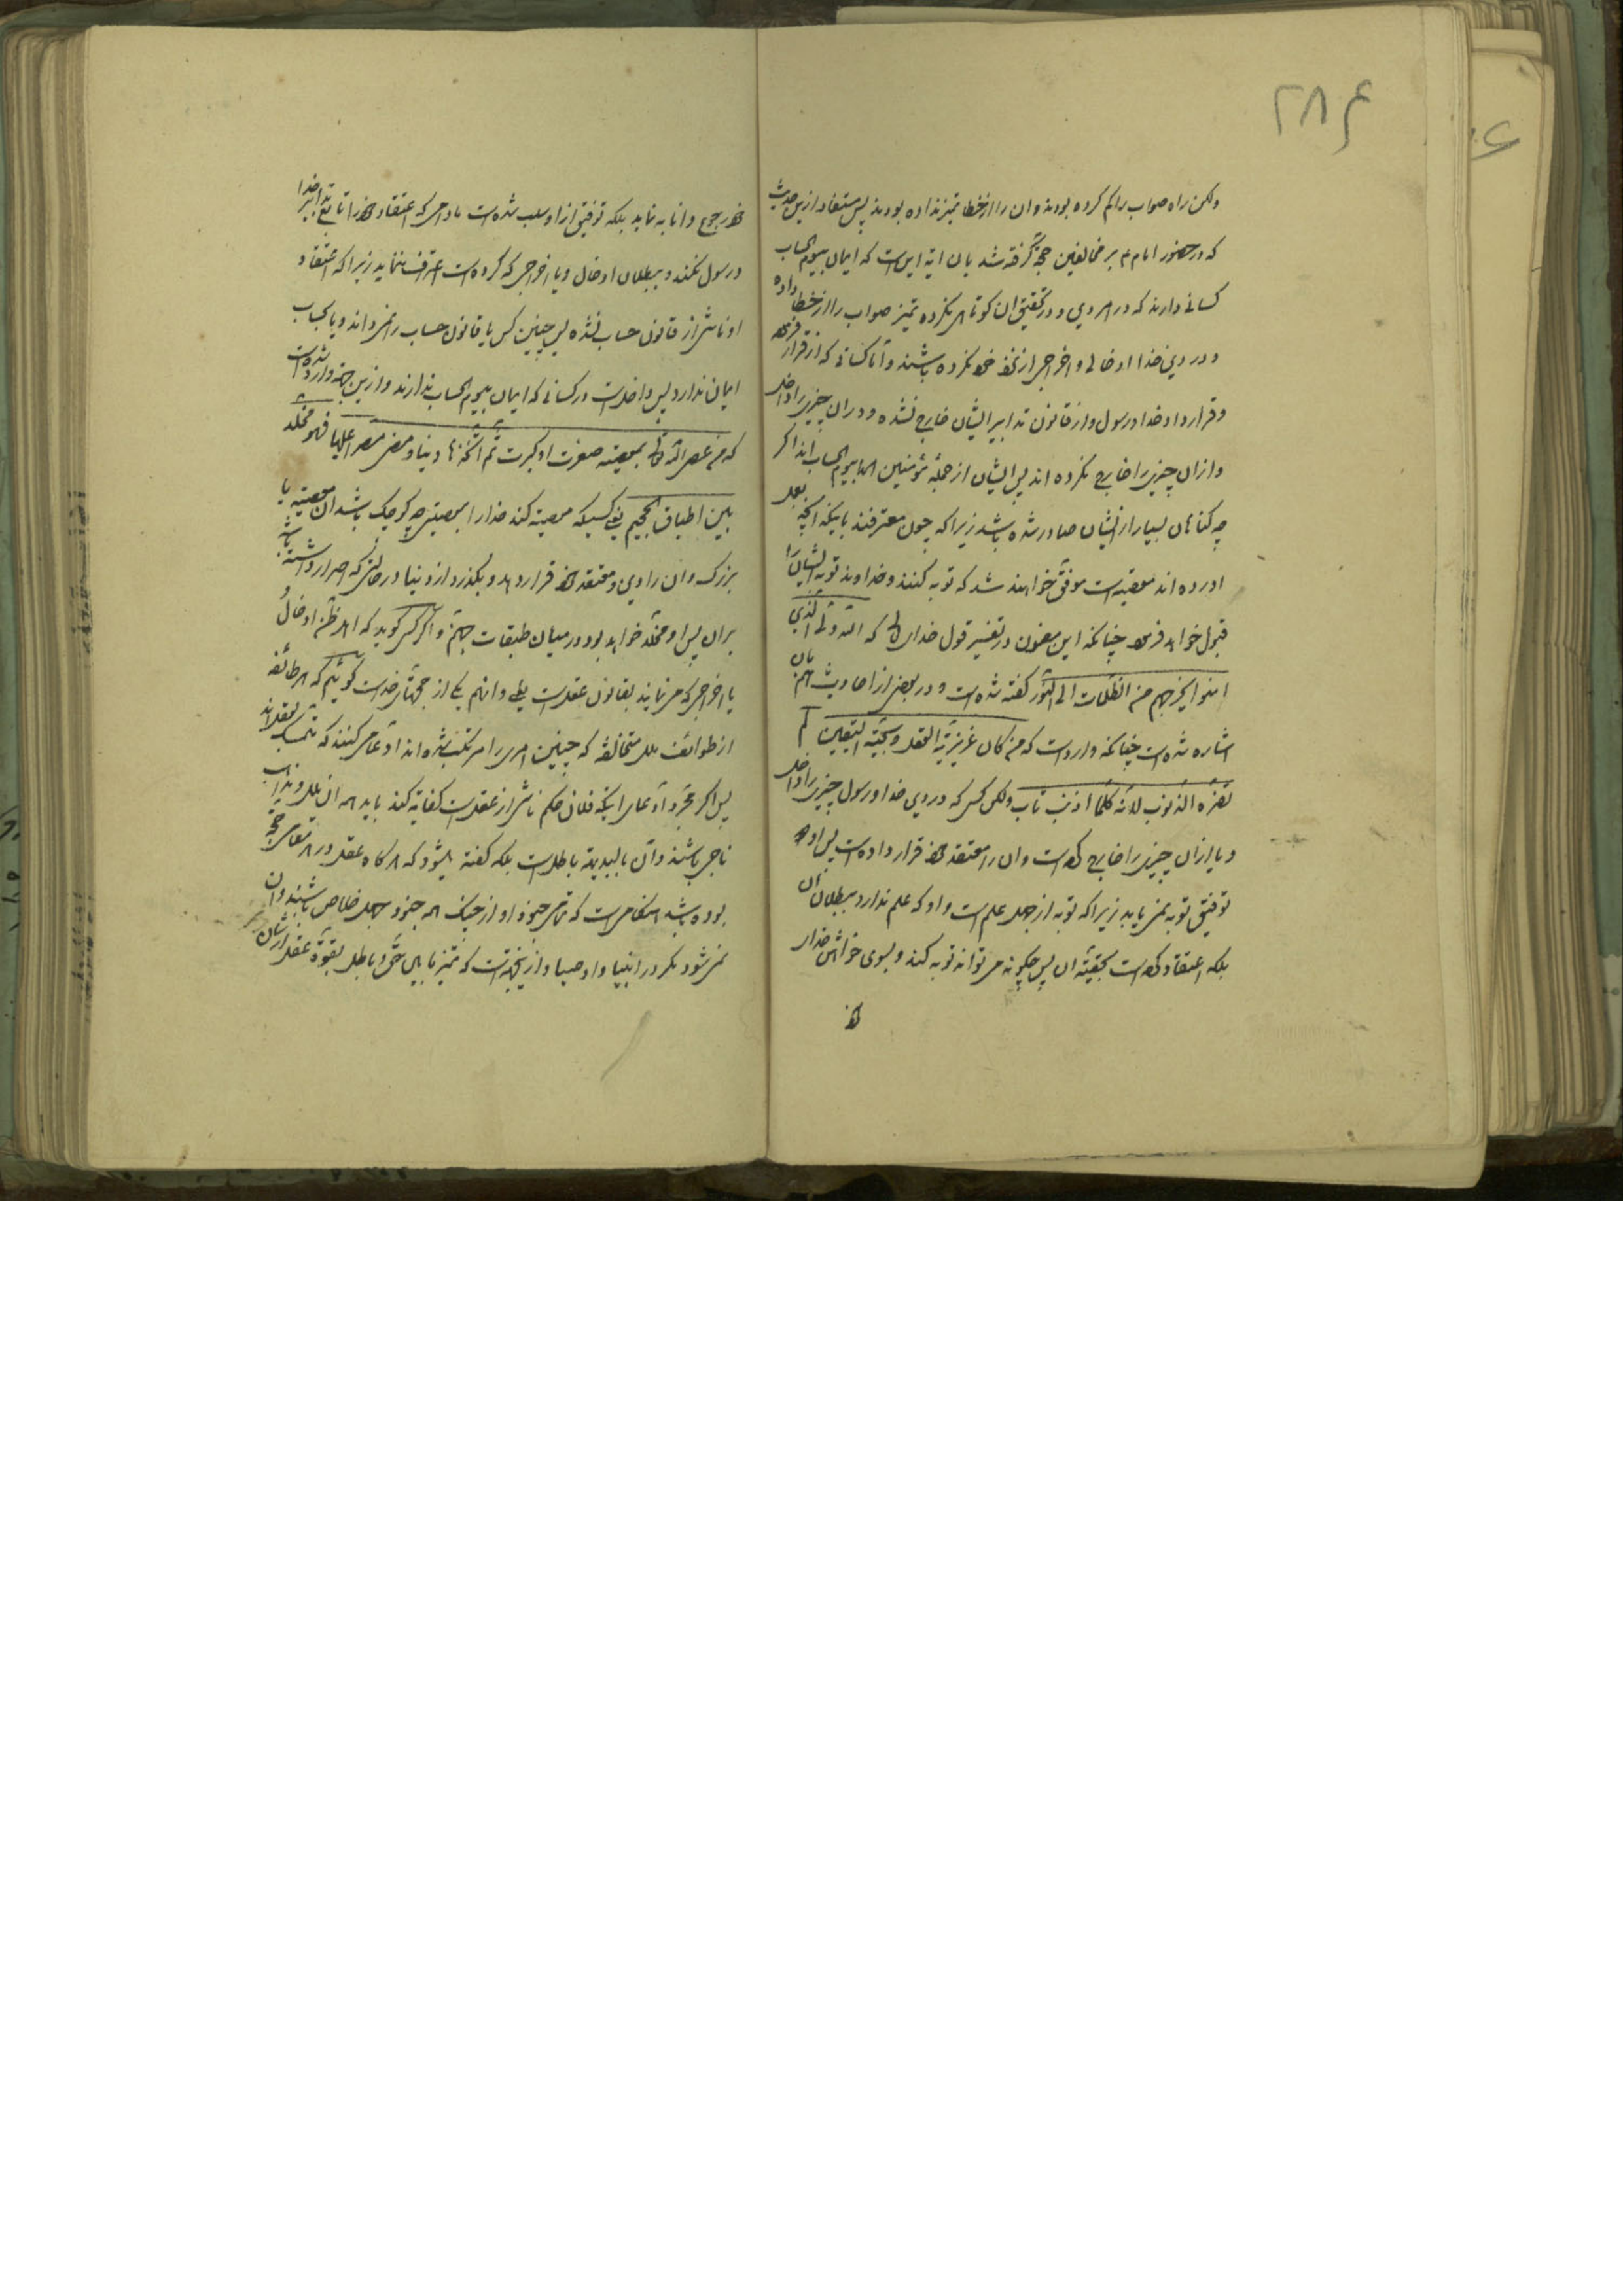 ۲۸۶
ولکن راه صواب را کم کرده بودند و ان را از خطا تمیز نداده بودند پس مستفاد ازین حدیث
که در حضور امام ۴ بر مخالفین حجة گرفته شد بان ایه این است که ایمان بیوم الحساب
کسانی دارند که در امر دین و در تحقیق ان کوتاهی نکرده تمیز صواب را از خطا داده
و در دین خدا ادخالی و اخراجی از نزد خود نکرده باشند و اما کسانی که از قرار
و قرارداد خدا و رسول و از قانون تدابیر ایشان خارج نشده و دران چیزی را داخل
و ازان چیزی را خارج نکرده اند پس ایشان از جمله مؤمنین اند بیوم الحساب اگر
چه کناهان بسیار از ایشان صادر شده باشد زیرا که چون معترفند باینکه انچه بعمل
اورده اند معصیه است موفق خواهند شد که توبه کنند و خداوند توبه ایشان را
قبول خواهد فرمود چنانکه این مضمون در تفسیر قول خدای تعالی که الله ولی الذین
امنوا یخرجهم من الظلمات الی النور کفته شده است و در بعضی از احادیث هم بان
اشاره شده است چنانکه وارد است که من کان غریزته العقل و سجیته الیقین لم
تضره الذنوب لانه کلما اذنب تاب ولکن کسی که در دین خدا و رسول چیزی را داخل
و یا ازان چیزی را خارج کرده است و ان را معتقد خود قرار داده است پس او
توفیق توبه نمی یابد زیرا که توبه از جمله علم است و او که علم ندارد ببطلان ان
بلکه اعتقاد کرده است بحقیة ان پس چکونه می تواند توبه کند و بسوی خدای
خود
خود رجوع و انابه نماید بلکه توفیق از او سلب شده است مادامی که اعتقاد خود را تابع تدابیر خدا
و رسول نکند و ببطلان ادخال و یا اخراجی که کرده است اعتراف ننماید زیرا که اعتقاد
او ناشی از قانون حساب نشده پس چنین کس یا قانون حساب را نمیداند و یا بحساب
ایمان ندارد پس داخل است در کسانی که ایمان بیوم الحساب ندارند و ازین جهة وارد شده است
که من عصی الله تعالی بمعصیته صغرت او کبرت ثم اتخذها دینا و مضی مصرا علیها فهو مخلد
بین اطباق الجحیم یعنی کسیکه معصیة کند خدا را بمعصیتی چه کوچک باشد ان معصیة یا
بزرک و ان را دین و معتقد خود قرار دهد و بگذرد از دنیا در حالتی که اصرار داشته باشد
بران پس او مخلد خواهد بود در میان طبقات جهنم و اکر کسی کوید که اهل ظن ادخال
یا اخراجی که می نمایند بقانون عقل است و انهم یکی از حجتهای خداست کوئیم که هر طائفه
از طوائف ملل متخالفه که چنین امری را مرتکب شده اند ادعا می کنند که متمسک بعقل اند
پس اکر مجرد ادعای اینکه فلان حکم ناشی از عقل است کفایة کند باید همه ان ملل و مذاهب
ناجی باشند و ان بالبدیهة باطل است بلکه کفته میشود که هر کاه عقل در هر مقامی حجة
بوده باشد هنکامی است که تمامی جنود او از جنک همه جنود جهل خلاص باشند و ان
نمی شود مکر در انبیا و اوصیا و ازینجهة است که تمیز مابین حق و باطل بقوة عقل از شان